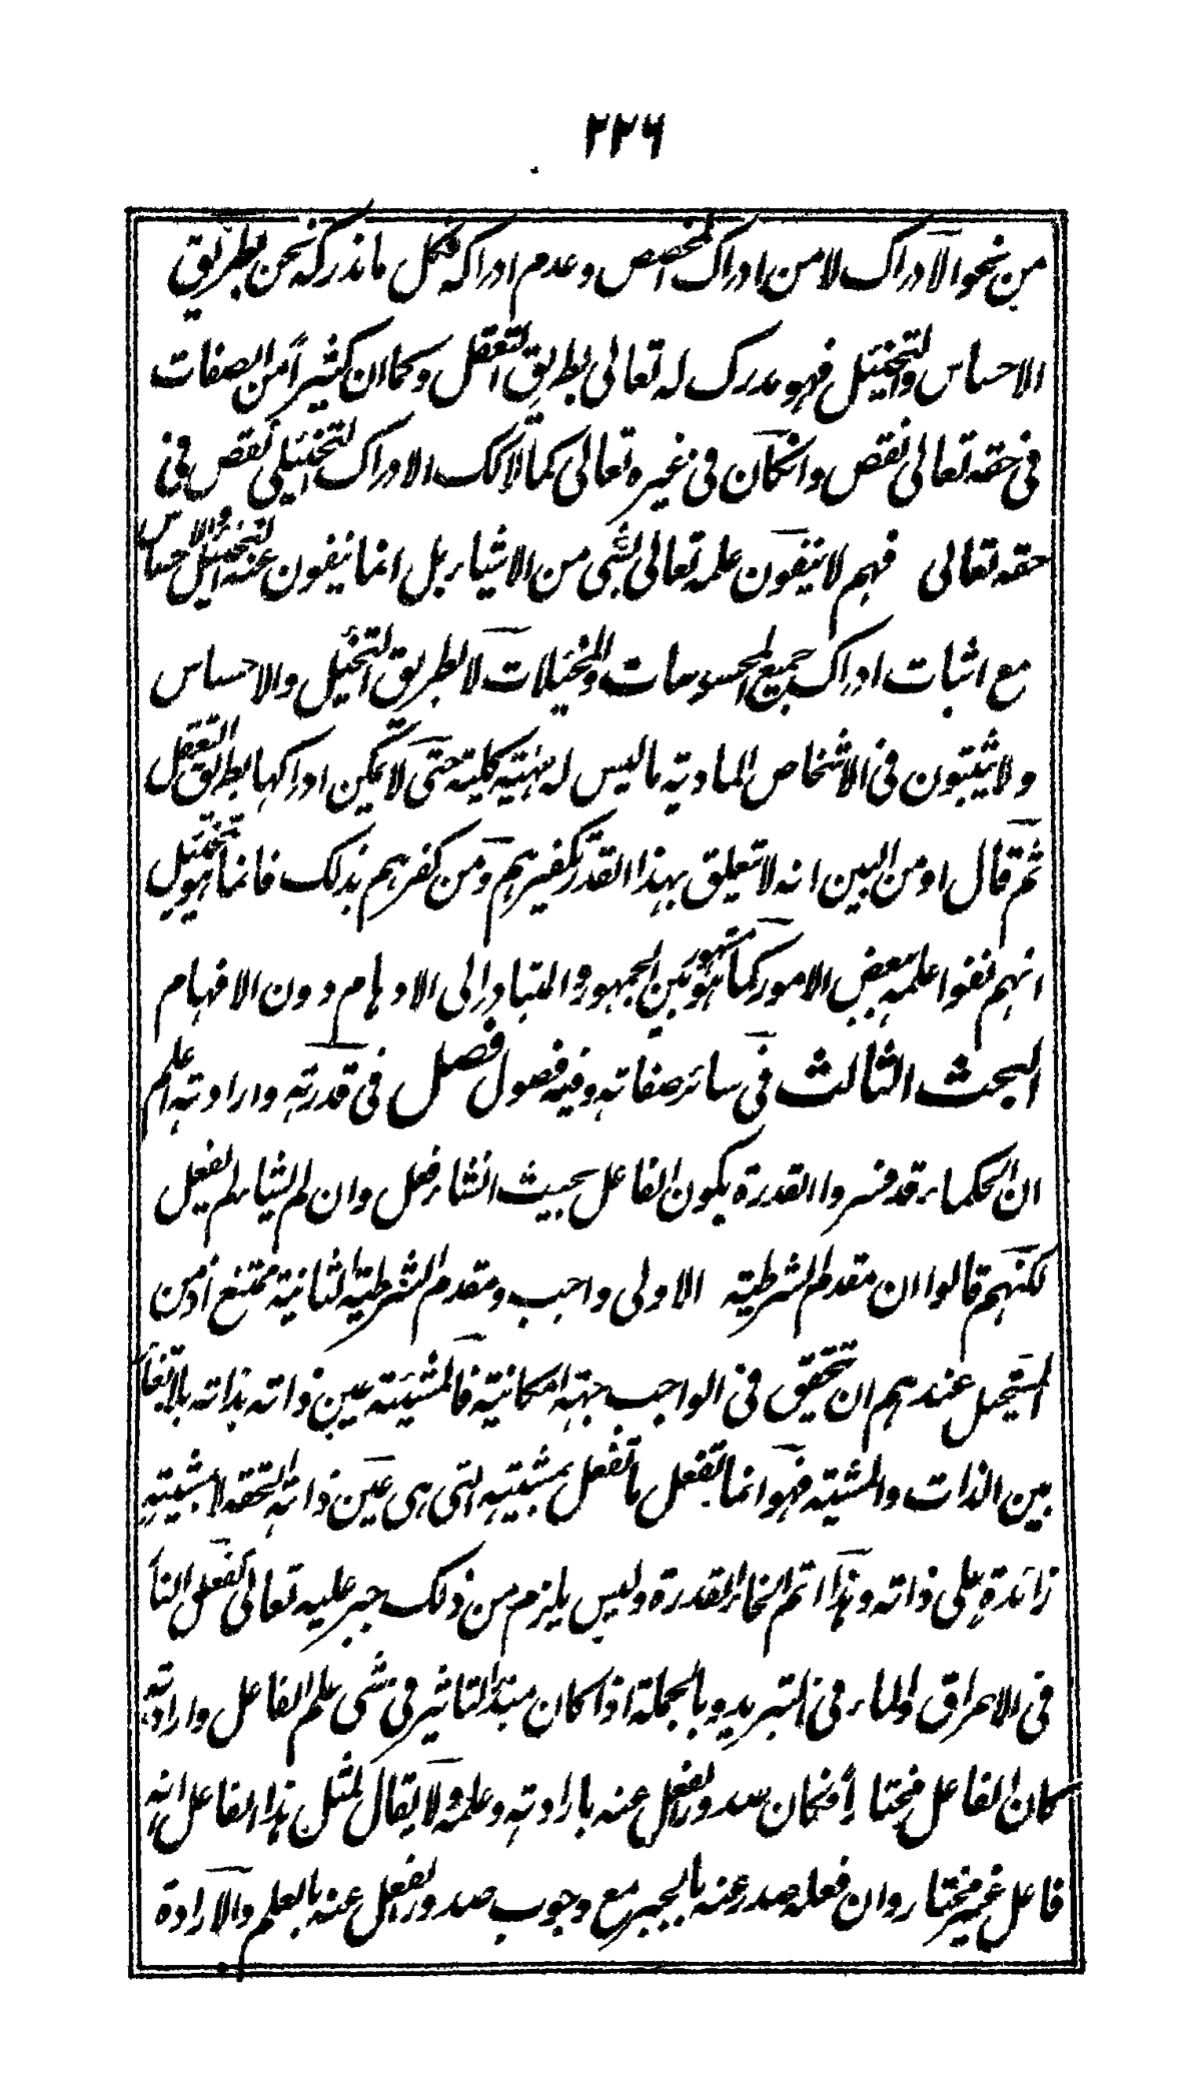 ٢٢٦
من نحو الادراك لا من ادراك المخصص وعدم ادراكه فكل ما ندركه نحن بطريق
الاحساس والتخيل فهو مدرك له تعالى بطريق التعقل وكما ان كثيرا من الصفات
فى حقه تعالى نقص وان كان فى غيره تعالى كمالا لك الادراك التخييلى نقص فى
حقه تعالى فهم لا ينفون علمه تعالى بشئ من الاشياء بل انما ينفون عنه التخيل والاحساس
مع اثبات ادراك جميع المحسوسات والمخيلات لا بطريق التخيل والاحساس
ولا يثبتون فى الاشخاص المادية ما ليس له مهية كلية حتى لا يمكن ادراكها بطريق التعقل
ثم قال او من البين انه لا تعلق بهذا القدر تكفيرهم ومن كفرهم بذلك فانما هو لتخيل
انهم نفوا علمه ببعض الامور كما هو مشهور بين الجمهور والمتبادر الى الاوهام دون الافهام
البحث الثالث فى سائر صفاته وفيه فصول فصل فى قدرته وارادته اعلم
ان الحكماء قد فسروا القدرة بكون الفاعل بحيث ان شاء فعل وان لم يشاء لم يفعل
لكنهم قالوا ان مقدم الشرطية الاولى واجب ومقدم الشرطية الثانية ممتنع اذ من
المستحيل عندهم ان تحقق فى الواجب جهة امكانية فالمشيئة عين ذاته بذاته بلا تغاير
بين الذات والمشية فهو انما يفعل ما يفعل بمشيته التى هى عين ذاته الحقه لا بمشيته
زائدة على ذاته وهذا اتم انحاء القدرة وليس يلزم من ذلك جبر عليه تعالى كفعل النار
فى الاحراق والماء فى التبريد وبالجملة اذا كان مبدأ التاثير فى شئ علم الفاعل وارادته
كان الفاعل مختارا وكان صدور الفعل عنه بارادته وعلمه ولا يقال لمثل هذا الفاعل انه
فاعل غير مختار وان فعله صدر عنه بالجبر مع وجوب صدور الفعل عنه بالعلم والارادة